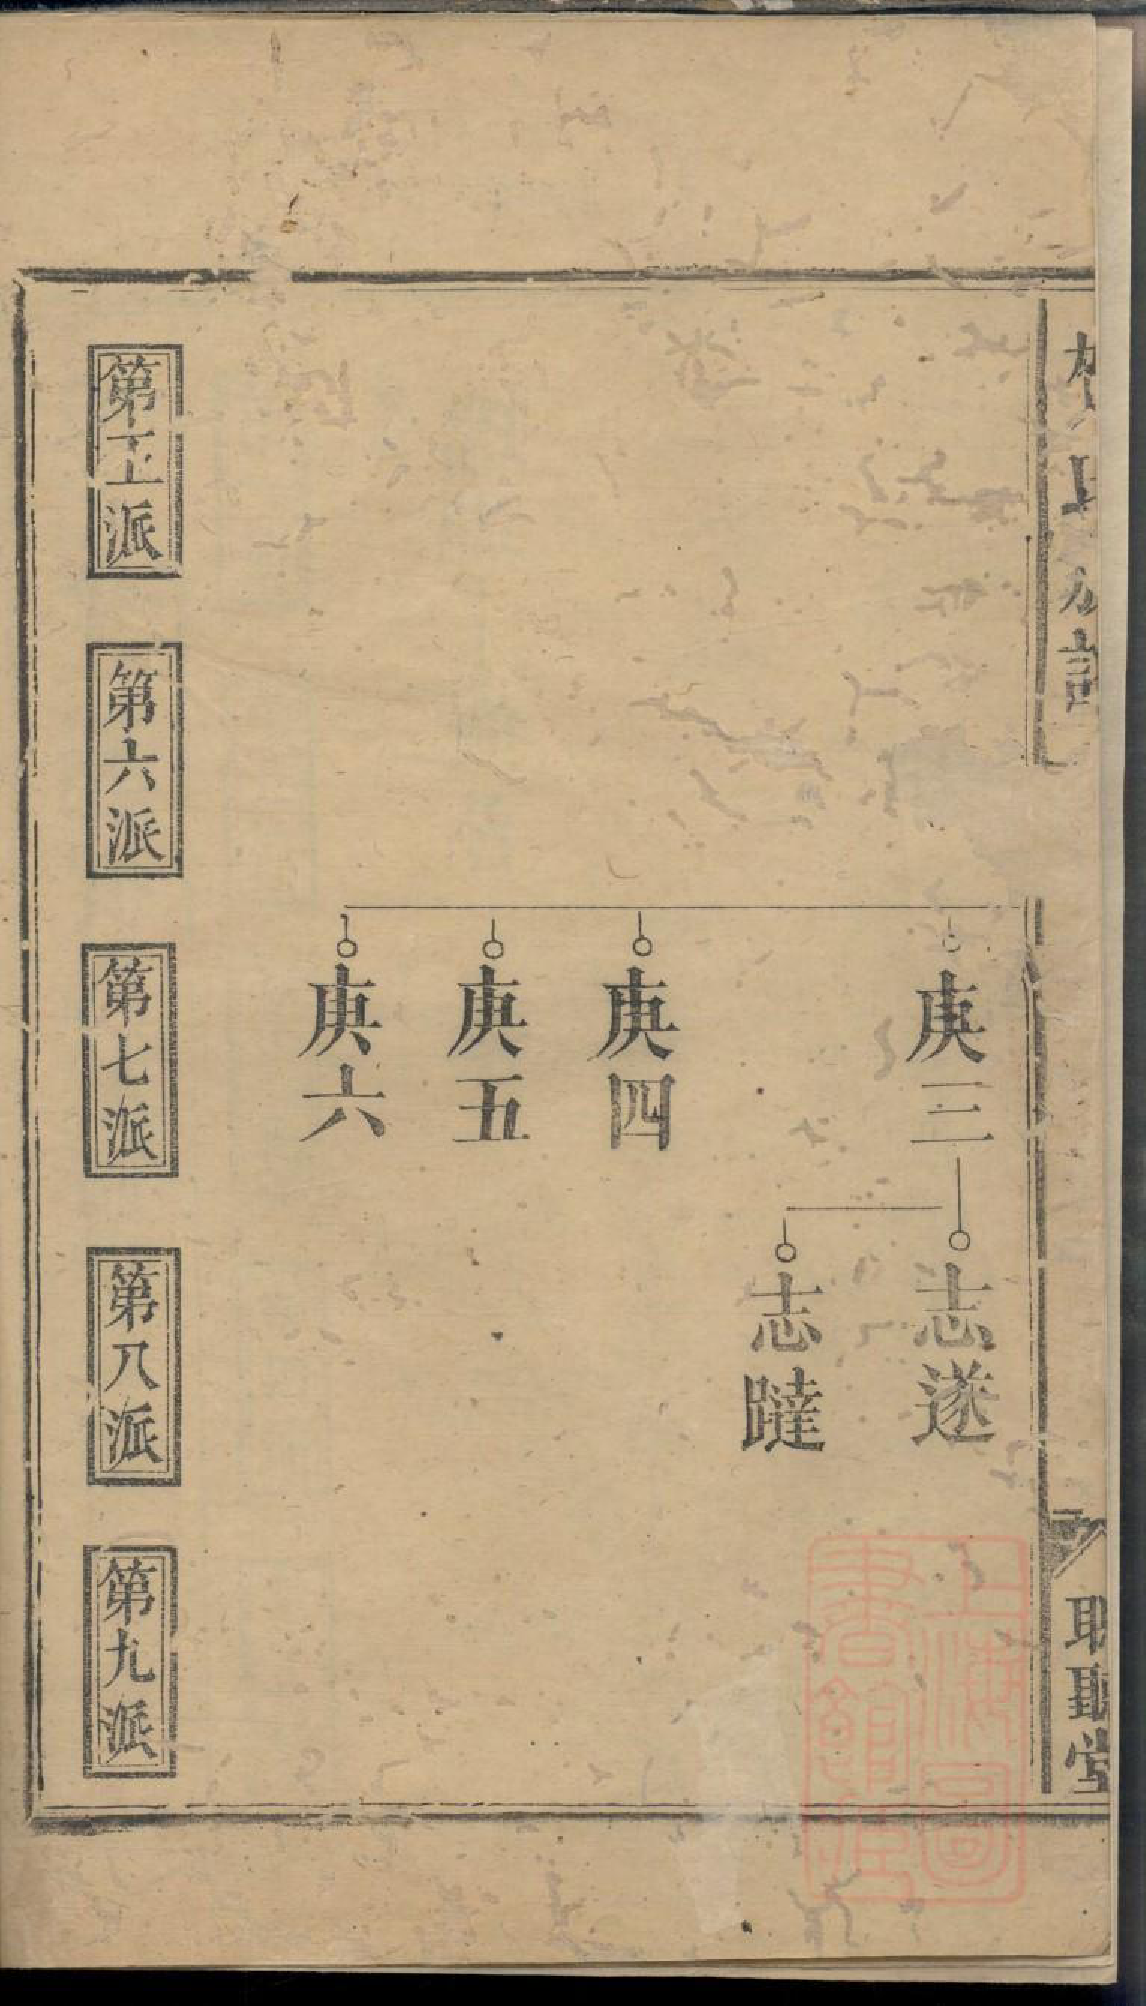 氏族譜
聴堂
庚三
志遂
志躂
庚四
庚五
庚六
第五派
第六派
第七派
第八派
第九派
上海圖
書館藏